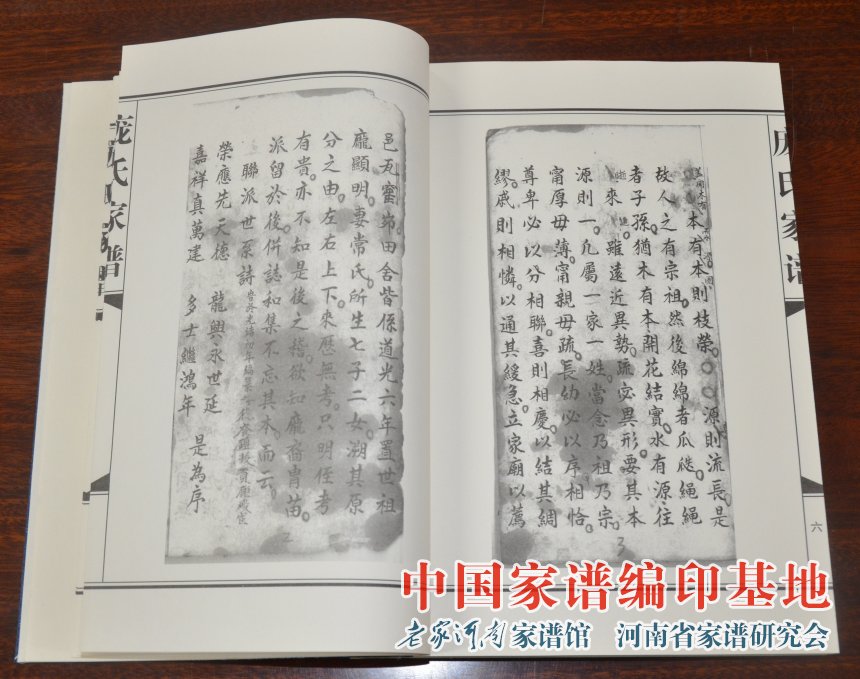 本有本則枝榮。源則流長是
故人之有宗祖。然後綿綿者瓜瓞繩繩
者子孫。猶木有本。開花結實。水有源。往
來。雖遠近異勢。疏宓異形。要其本
源則一。凡屬一家一姓。當念乃祖乃宗。
甯厚毋薄。甯親毋疏。長幼必以序相恰。
尊卑必以分相聯。喜則相慶。以結其綢
繆。戚則相憐。以通其緩急。立家廟以薦
3
六
邑瓦窰峁田舍皆係道光六年置世祖
龐顯明。妻常氏。所生七子二女溯其原
分之由。左右上下。來歷無考。只明侄考
有貴。亦不知是後之欲知龐裔胄苗。
派留於後。併誌和集不忘其本。而云。
聯派世系詩
榮應先天德 龍興永世延
嘉祥真萬建 多士繼鴻年 是為序
2
庞氏家谱
庞氏家谱
中国家谱编印基地
老家河南家谱馆 河南省家谱研究会